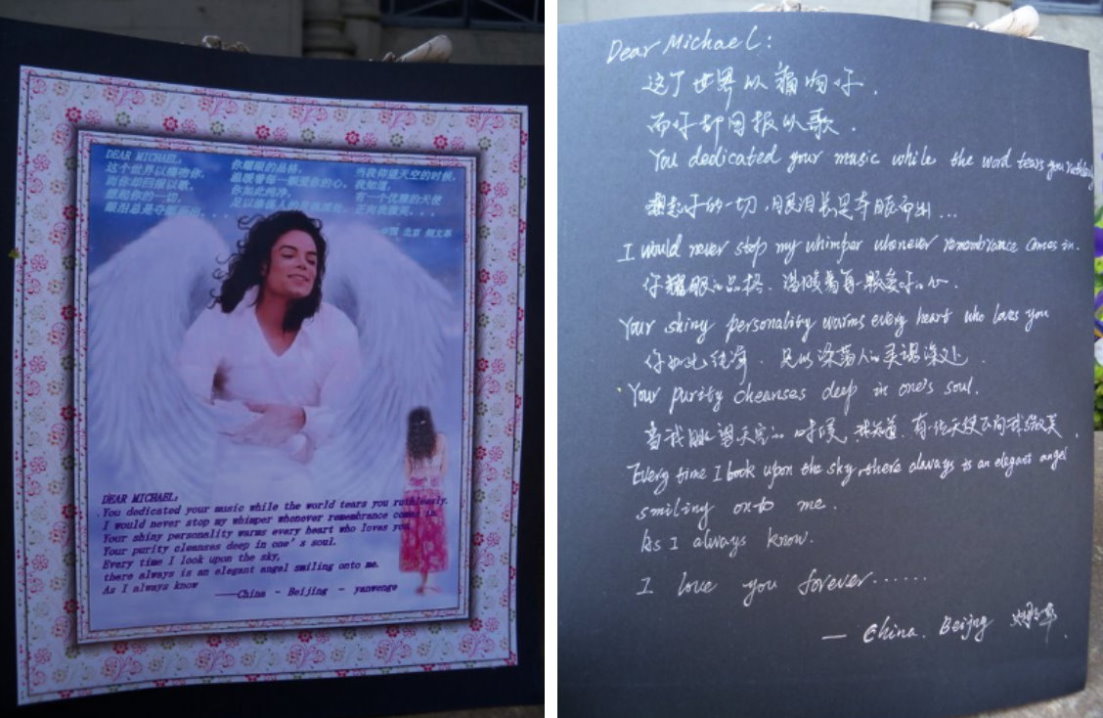 DEAR MICHAEL:
这个世界以痛吻你,
而你却回报以歌.
想起你的一切,
眼泪总是夺眶而出...
你耀眼的品格,
温暖着每一颗爱你的心.
你如此纯净,
当我仰望天空的时候,
我知道,
有一个优雅的天使
正向我微笑...
中国 北京
DEAR MICHAEL:
You dedicated your music while the world tears you ruthlessly.
I would never stop my whimper whenever remembrance comes in.
Your shiny personality warms every heart who loves you
Your purity cleanses deep in one's soul.
Every time I look upon the sky,
there always is an elegant angel smiling onto me.
As I always know
——China - Beijing - yanwenge
Dear Michael:
这个世界以痛吻你.
而你却回报以歌.
You dedicated your music while the word tears you
想起你的一切,眼泪总是夺眶而出...
I would never stop my whimper whenever remembrance comes in.
你耀眼的品格.温暖着每一颗爱你的心.
Your shiny personality warms every heart who loves you
你如此纯净.足以涤荡人的灵魂深处.
Your purity cheanses deep in one's soul.
当我眺望天空的时候,我知道,有一位天使正向我微笑.
Every time I look upon the sky, there always is an elegant angel
smiling onto me.
As I always know.
I love you forever......
— China. Beijng